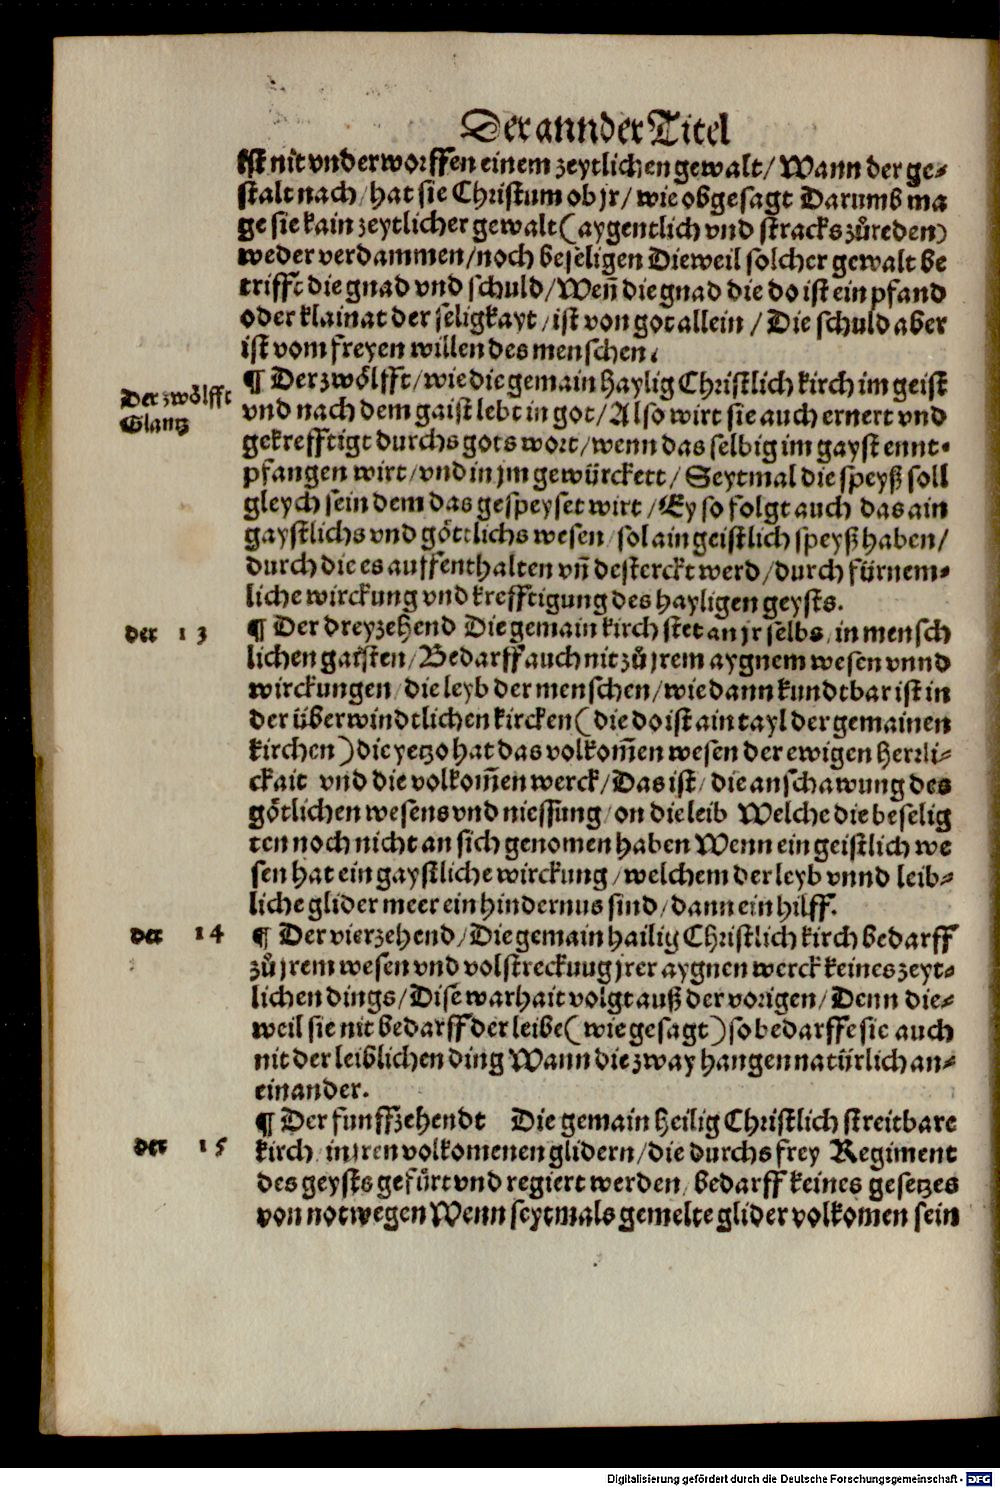 Der annder Titel
Ist nit vnderworffen einem zeytlichen gewalt/ Wann der ge⸗
stalt nach/ hat sie Christum ob jr/ wie obgesagt Darumb ma
ge sie kain zeytlicher gewalt (aygentlich vnd stracks zůreden)
weder verdammen/ noch beseligen Dieweil solcher gewalt be
trifft die gnad vnd schuld/ Weñ die gnad die do ist ein pfand
oder klainat der seligkayt/ ist von got allein/ Die schuld aber
ist vom freyen willen des menschen.
Der zwölfft
Glantz
¶ Der zwölfft/ wie die gemain haylig Christlich kirch im geist
vnd nach dem gaist lebt in got/ Also wirt sie auch ernert vnd
gekrefftigt durchs gots wort/ wenn das selbig im gayst ennt⸗
pfangen wirt/ vnd in jm gewürckett/ Seytmal die speyß soll
gleych sein dem das gespeyset wirt/ Ey so folgt auch das ain
gaystlichs vnd göttlichs wesen/ sol ain geistlich speyß haben/
durch die es auffenthalten vñ desterckt werd/ durch fürnem⸗
liche wirckung vnd krefftigung des hayligen geysts.
der 13
¶ Der dreyzehend Die gemain kirch stet an jr selbs/ in mensch
lichen gaisten/ Bedarff auch nit zů jrem aygnem wesen vnnd
wirckungen/ die leyb der menschen/ wie dann kundtbar ist in
der überwindtlichen kircken (die do ist ain tayl der gemainen
kirchen) die yetzo hat das volkom̃en wesen der ewigen herrli⸗
ckait vnd die volkom̃en werck/ Das ist/ die anschawung des
götlichen wesens vnd niessung/ on die leib Welche die beselig
ten noch nicht an sich genomen haben Wenn ein geistlich we
sen hat ein gaystliche wirckung/ welchem der leyb vnnd leib⸗
liche glider meer ein hindernus sind/ dann ein hilff.
der 14
¶ Der vierzehend/ Die gemain hailig Christlich kirch bedarff
zů jrem wesen vnd volstreckuug jrer aygnen werck keines zeyt⸗
lichen dings/ Dise warhait volgt auß der vorigen/ Denn die⸗
weil sie nit bedarff der leibe (wie gesagt) so bedarffe sie auch
nit der leiblichen ding Wann die zway hangen natürlich an⸗
einander.
der 15
¶ Der funffzehendt Die gemain heilig Christlich streitbare
kirch/ in jren volkomenen glidern/ die durchs frey Regiment
des geysts gefürt vnd regiert werden/ bedarff keines gesetzes
von notwegen Wenn seytmals gemelte glider volkomen sein
Digitalisierung gefördert durch die Deutsche Forschungsgemeinschaft - DFG